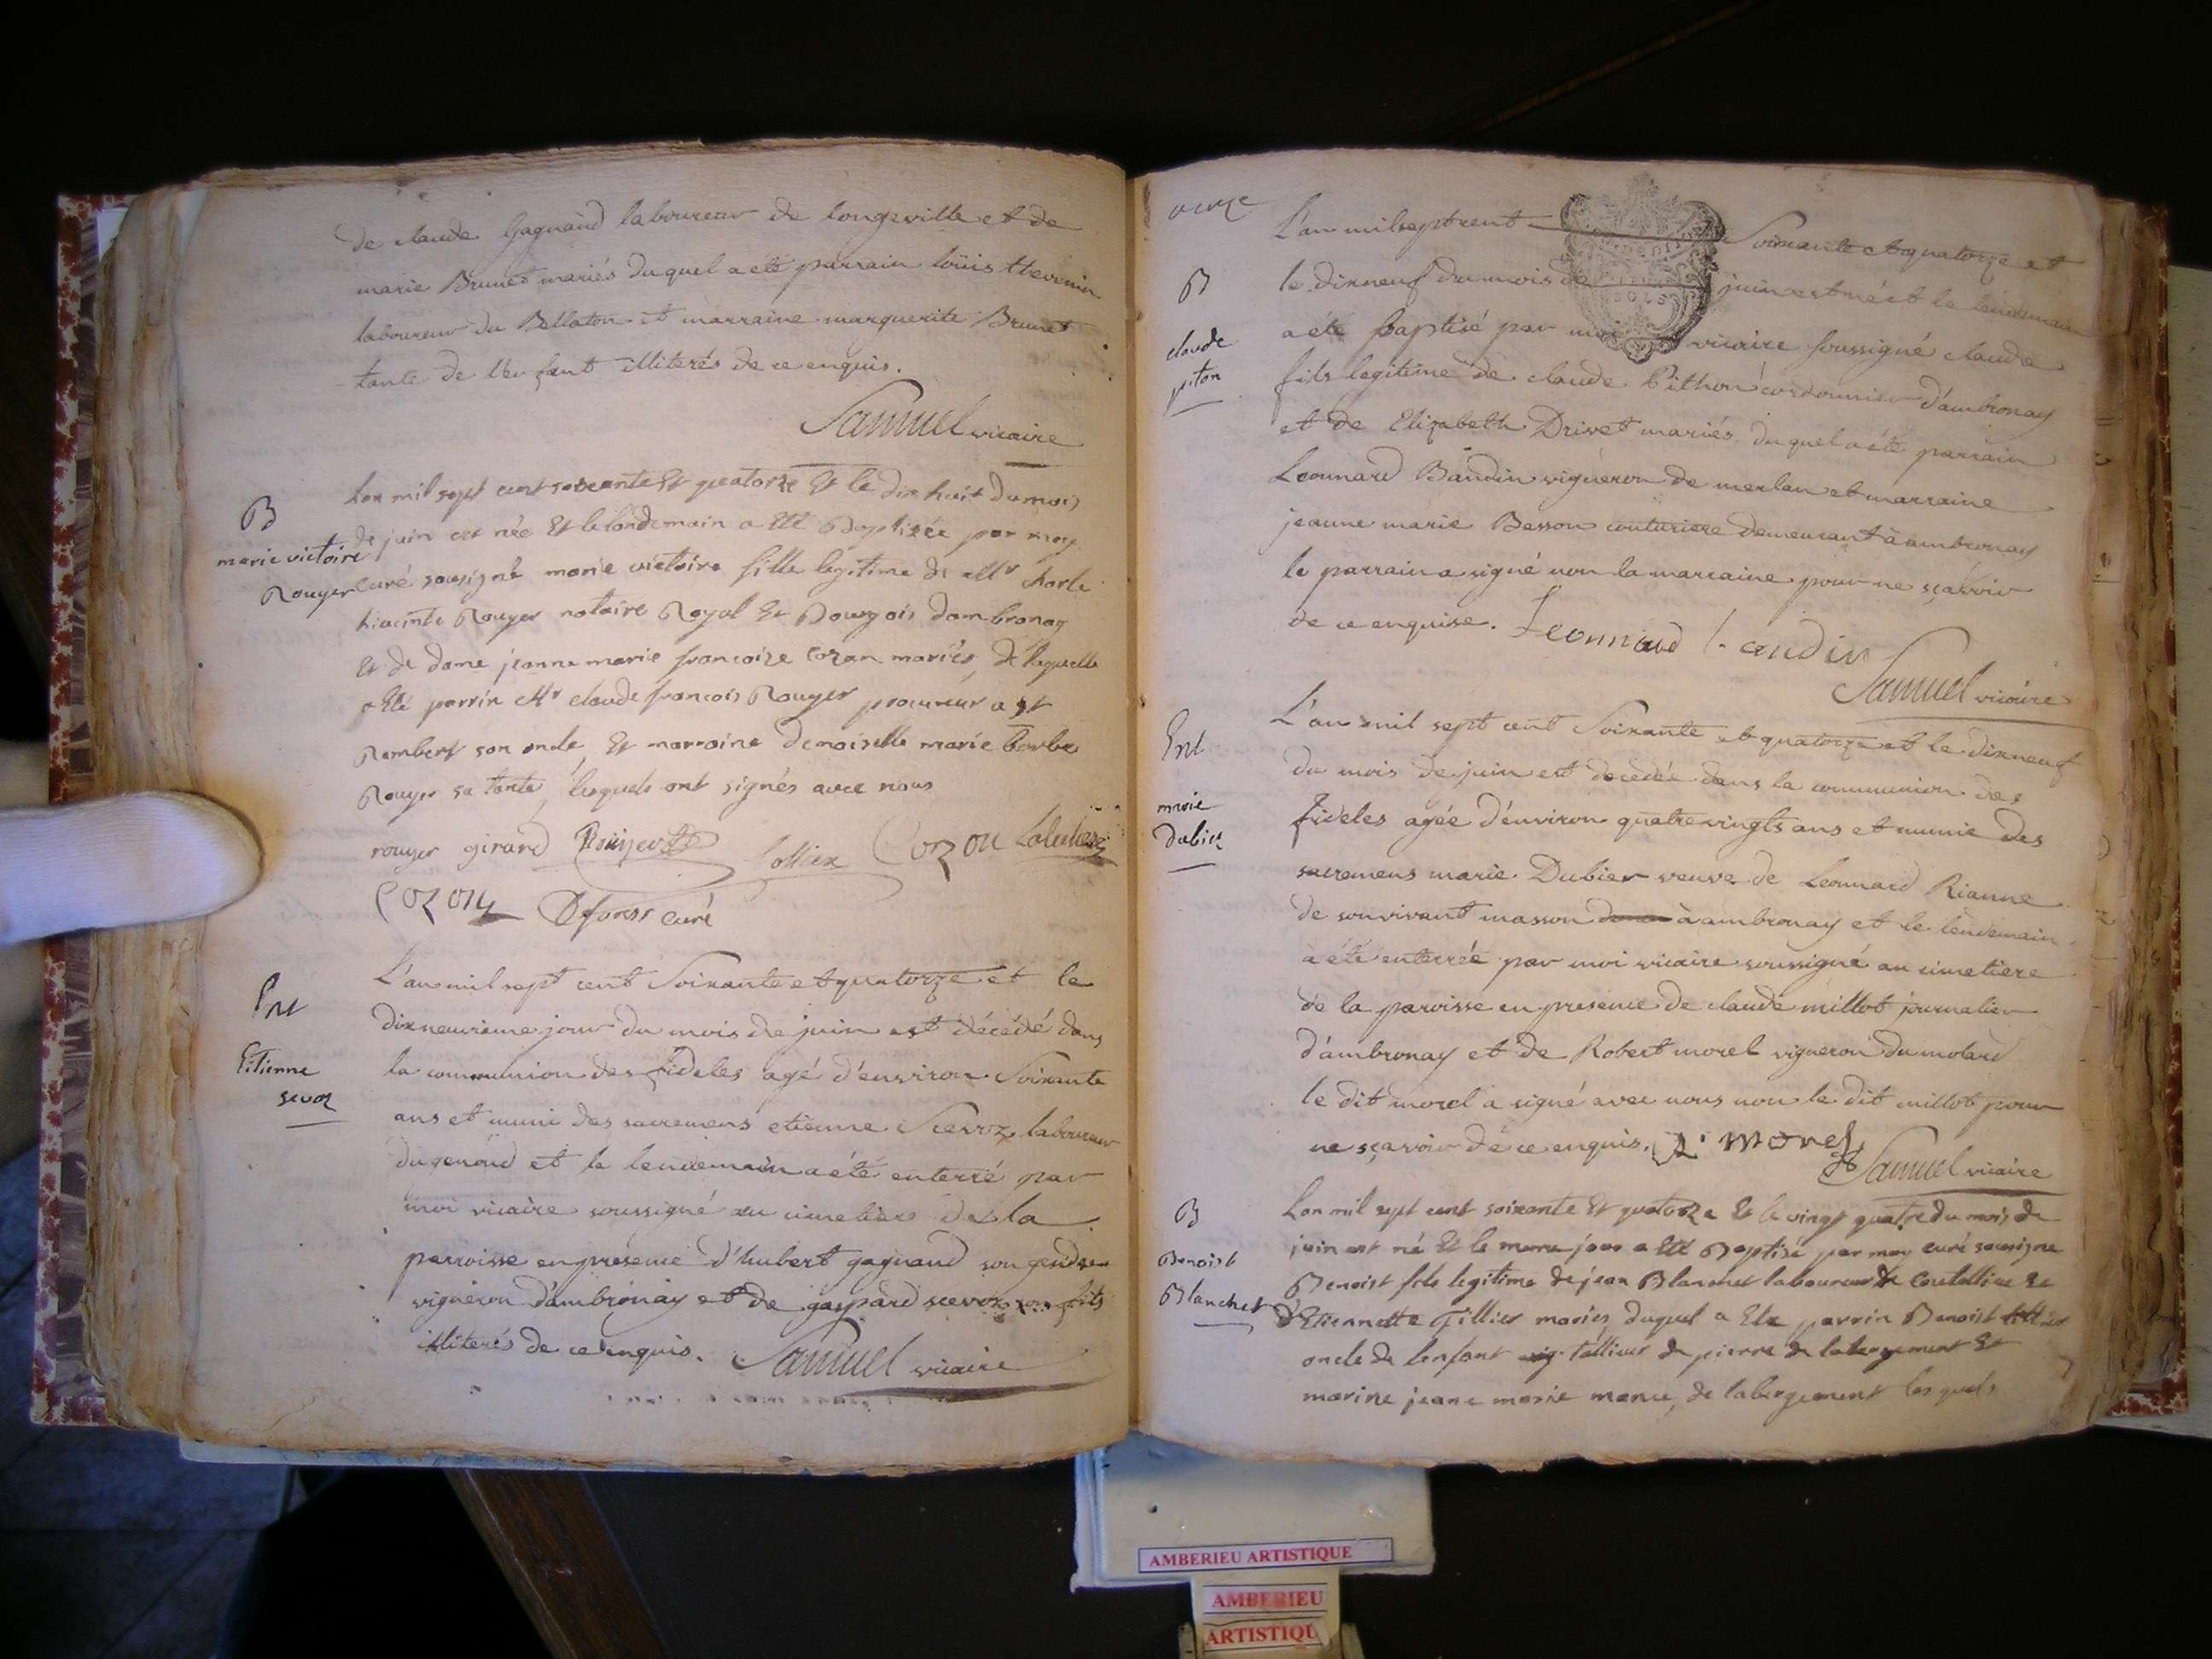 de claude Gagnaud laboureur de longeville et de
marie Brunet mariés duquel a été parrain loüis thevenin
laboureur du Bellaton et marraine marguerite Brunet
tante de l'enfant illiterés de ce enquis.
Samuel vicaire
B
marie victoire
Rouyer
Lan mil sept cent soixante Et quatorze Et le dix huit du mois
de juin est née Et le londemain a Eté Baptisée par moy
curé sousigné marie victoire fille legitime de Mr charle
hiacinte Rouyer notaire Royal Et Bourgois dambronay
Et de dame jeanne marie francoize Cozan mariés, de laquelle
a Eté parrin Mr claude francois Rouyer procureur a st
Rambert son oncle, Et marraine demoiselle marie barbe
Rouyer sa tante, lesquels ont signés avec nous
rouyer girard Rouyer Collier Cozon
Cozon curé
Ent
Etienne
sevoz
L'an mil sept cent Soixante et quatorze et le
dixneuvieme jour du mois de juin est décédé dans
la communion des fideles agé d'environ Soixante
ans et muni des sacremens etienne Scevoz laboureur
du genoud et le lendemain a été enterré par
moi vicaire soussigné au cimetiere de la
parroisse en presence d'hubert gagnaud son gendre
vigneron d'ambronay et de gaspard scevoz son fils
illiterés de ce enquis. Samuel vicaire
onze
B
claude
piton
L'an mil sept cent Soixante et quatorze et
le dixneuf du mois de juin est né et le lendemain
a été baptisé par moi vicaire soussigné claude
fils legitime de claude Pithon cordonnier d'ambronay
et de Elizabeth Drivet mariés duquel a été parrain
Leonnard Baudin vigneron de merlan et marraine
jeanne marie Besson couturiere demeurant à ambronay
le parrain a signé non la marraine pour ne sçavoir
de ce enquise. Leonnard baudin
Samuel vicaire
Ent
marie
Dubier
L'an mil sept cent Soixante et quatorze et le dixneuf
du mois de juin est decedée dans la communion des
fideles agée d'environ quatre vingts ans et munie des
sacremens marie Dubier veuve de Leonnard Rianne
de son vivant masson à ambronay et le lendemain
a été enterrée par moi vicaire soussigné au cimetiere
de la paroisse en presence de claude millot journalier
d'ambronay et de Robert morel vigneron du molard
le dit morel a signé avec nous non le dit millot pour
ne sçavoir de ce enquis. R. morel
Samuel vicaire
B
Benoist
Blanchet
Lan mil sept cent soixante Et quatorze Et le vingt quatre du mois de
juin est né Et le meme jour a Eté Baptisé par moy curé sousigne
Benoist fils legitime de jean Blanchet laboureur de Coutelieu Et
d'Etiennette Tillier mariés, duquel a Eté parrin Benoist tillier
oncle de lenfant tallieur de pierre de labergement Et
marine jeane marie de labergement les quels
AMBERIEU ARTISTIQUE
AMBERIEU
ARTISTIQU